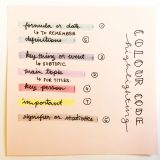 formula or date ①
↳ TO REMEMBER
definitions ⑥
key thing or event ③
↳ SUBTOPIC
main topic ⑤
↳ FOR TITLES
key person ④
important ⑦
signifier or statistics ⑥
COLOUR CODE
highlighting